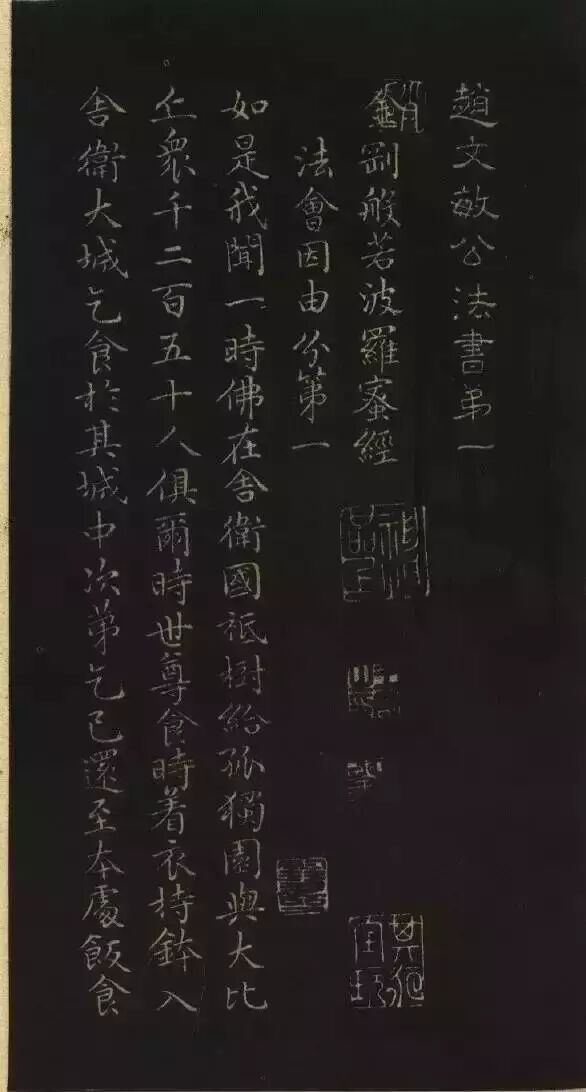 趙文敏公法書第一
金剛般若波羅蜜經
法會因由分第一
如是我聞一時佛在舍衛國祇樹給孤獨園與大比
丘衆千二百五十人俱爾時世尊食時着衣持鉢入
舍衞大城乞食於其城中次第乞已還至本處飯食